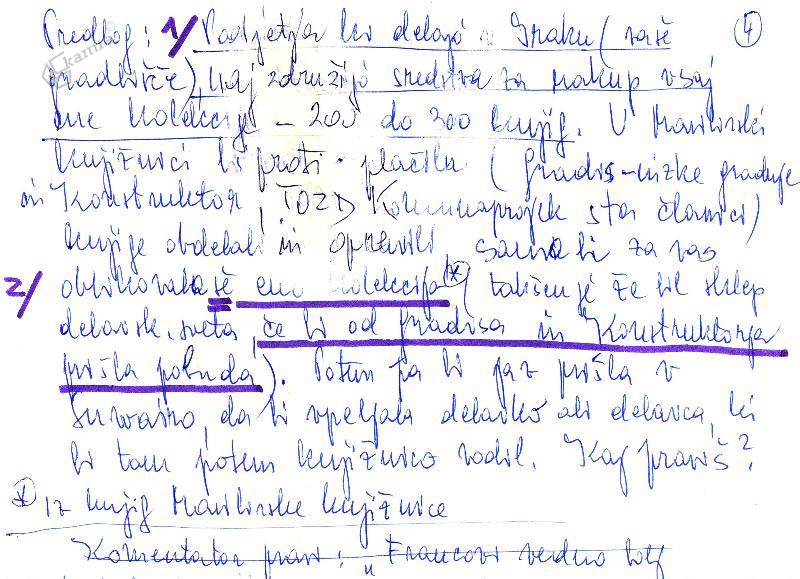 Predlog: 1/ Podjetja ki delajo v Iraku (vaše ④
gradbišče), naj združijo sredstva za nakup vsaj
ene kolekcije – 200 do 300 knjig. V Mariborski
knjižnici bi proti plačilu (Gradis-nizke gradnje
in Konstruktor, TOZD Komunaprojekt sta člana)
knjige obdelali in opremili sama bi za vas
2/ oblikovala še eno kolekcijo * (takšen je že bil sklep
delavsk. sveta, če bi od Gradisa in Konstruktorja
prišla pobuda). Potem pa bi jaz prišla v
, da bi vpeljala delavko ali delavca, ki
bi tam potem knjižnico vodil. Kaj praviš?
* iz knjig Mariborske knjižnice
Komentator pravi: " Francozi vedno bolj
kamra